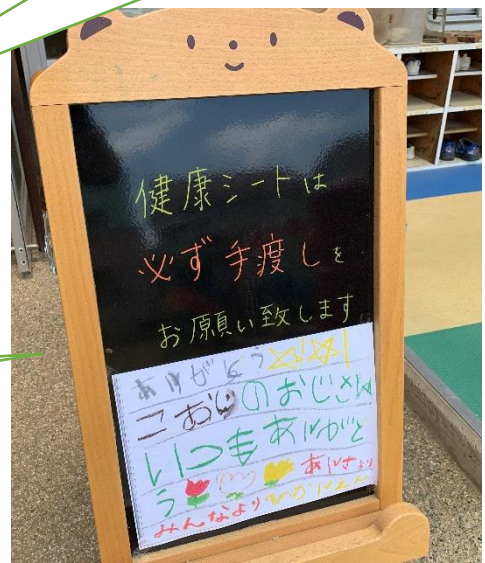 健康シートは
必ず手渡しを
お願い致します
ありがとう
こおりのおじさん
いつもありがと
う
みんなより